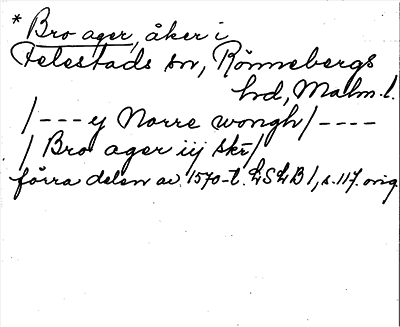 * Bro ager, åker i
Felestads sn, Rönnebergs
hd, Malm. l.
/--- ej Norre wongh/----
/ Bro ager iij skr/
förra delen av 1570-t. LSLB 1, s. 117. orig.